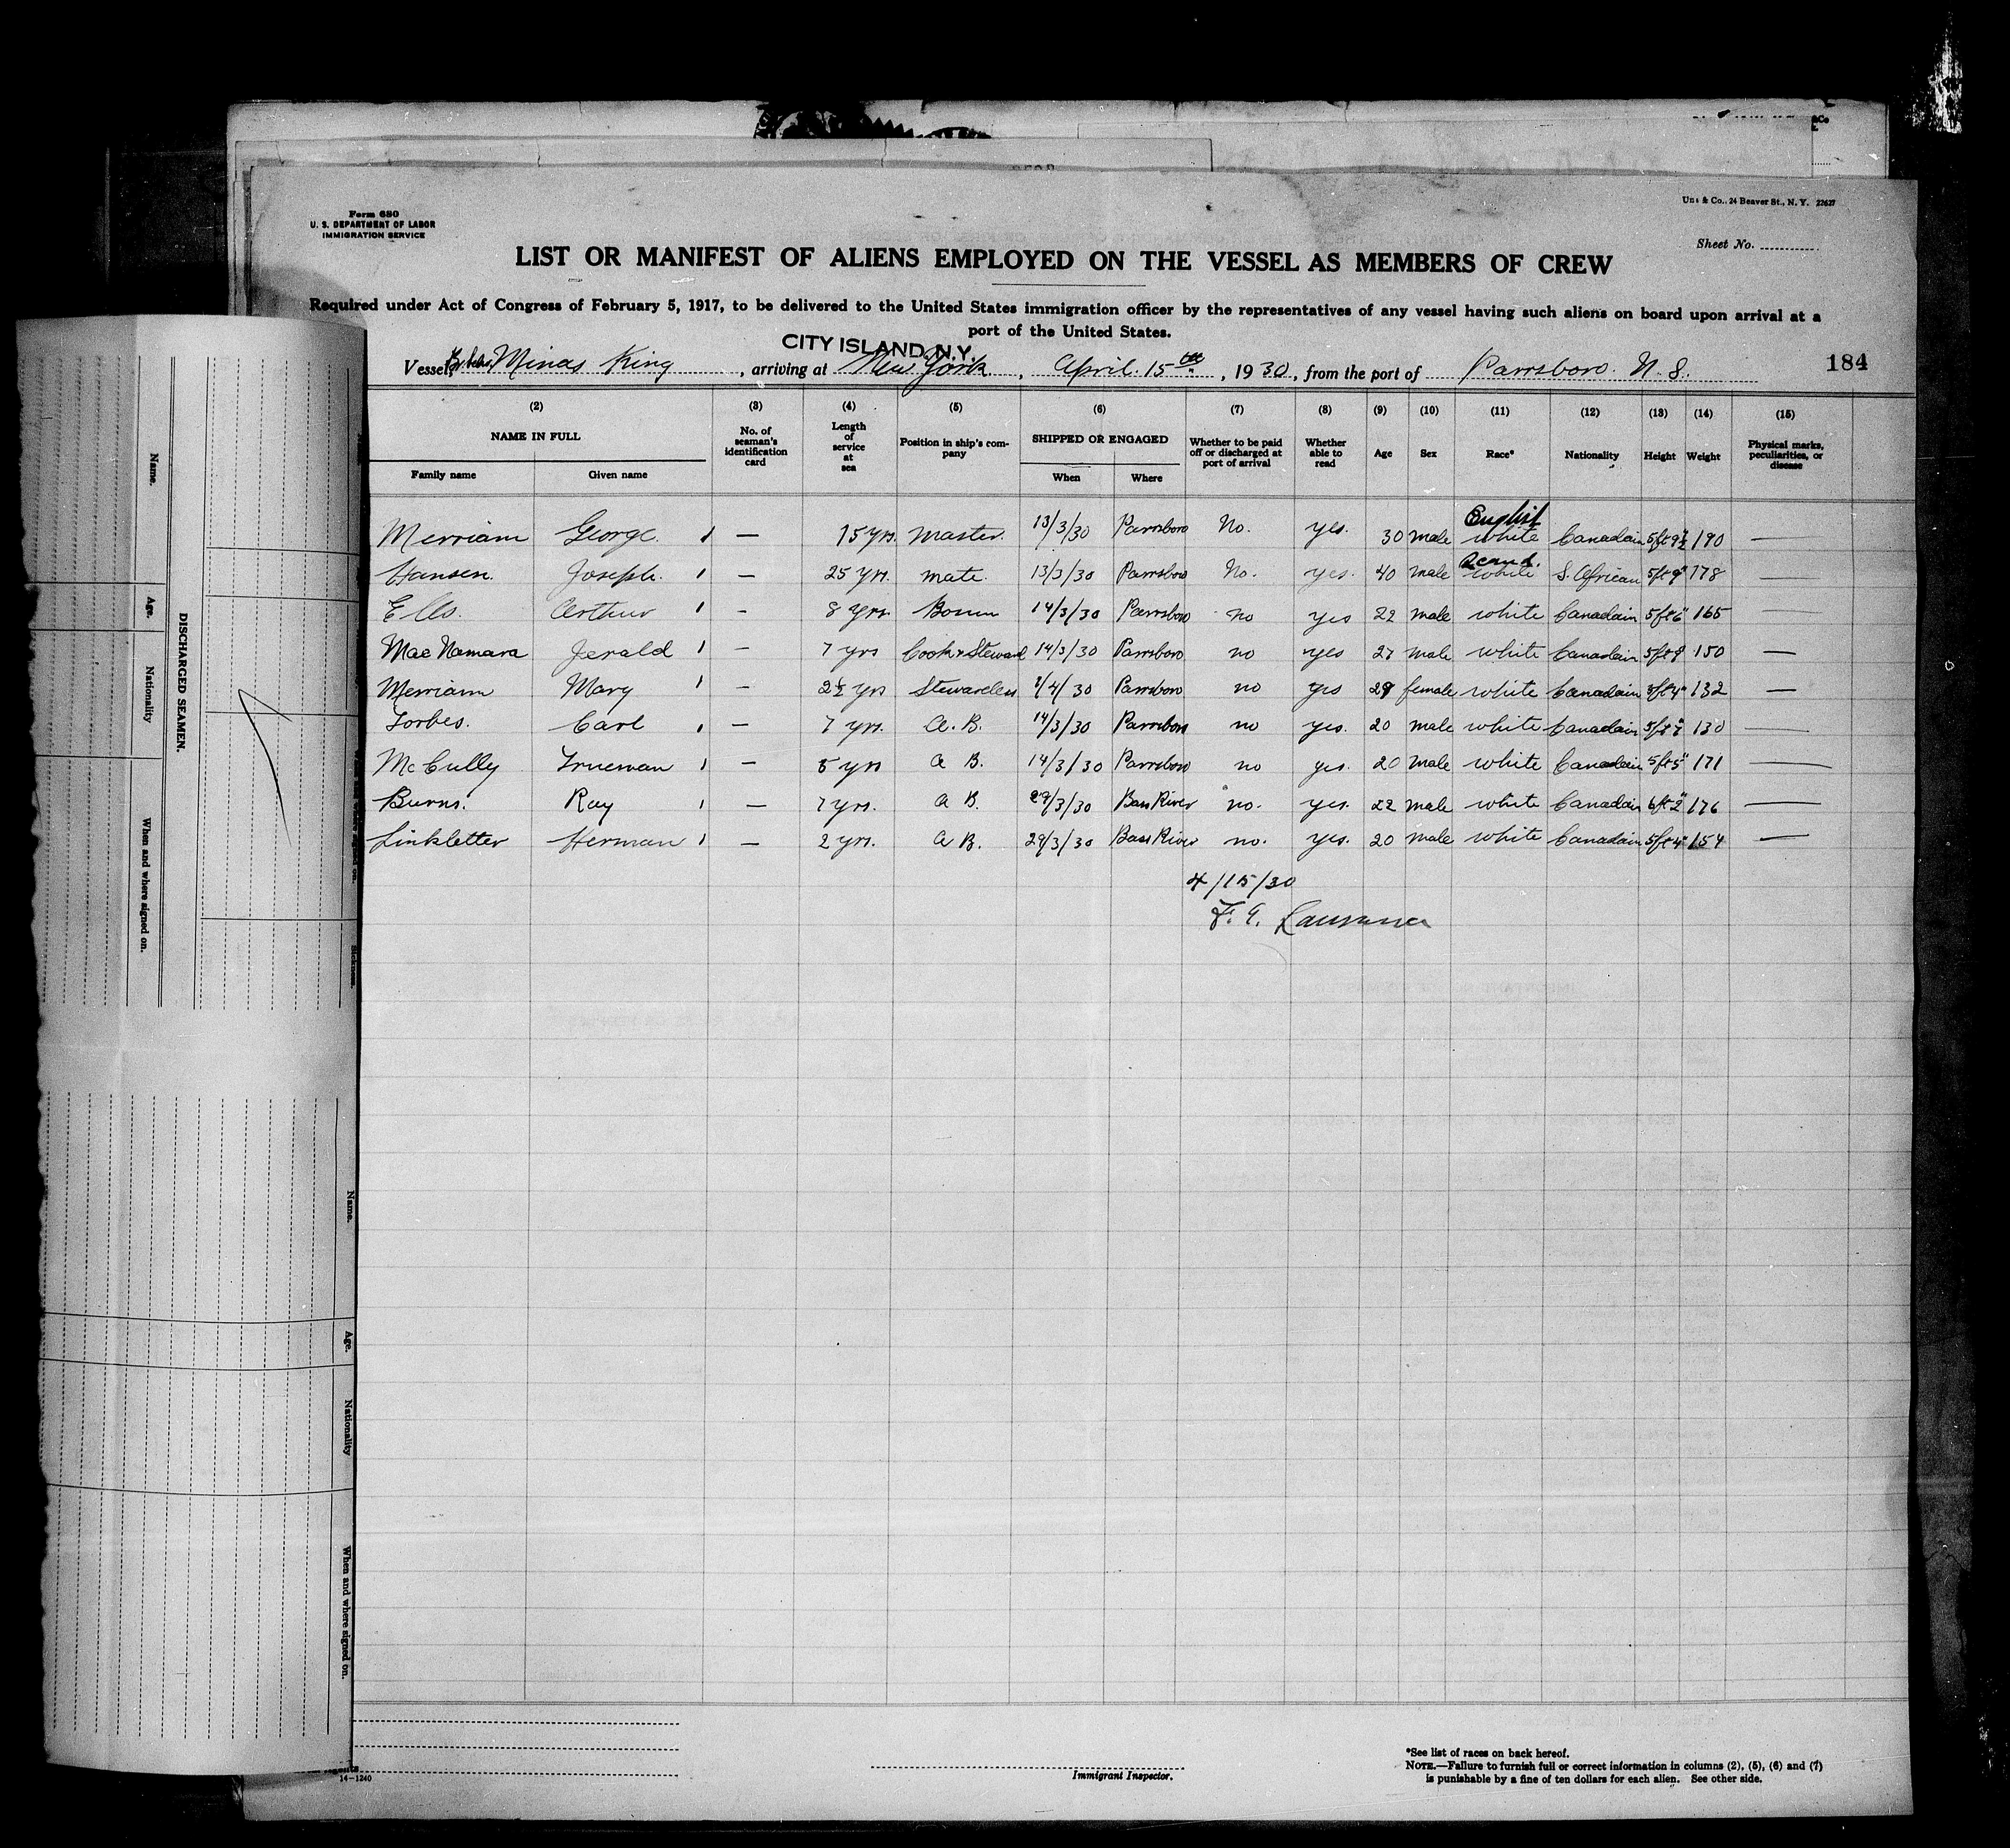 Form 680
U. S. DEPARTMENT OF LABOR
IMMIGRATION SERVICE
& Co., 24 Beaver St., N. Y. 22627
Sheet No.
LIST OR MANIFEST OF ALIENS EMPLOYED ON THE VESSEL AS MEMBERS OF CREW
Required under Act of Congress of February 5, 1917, to be delivered to the United States immigration officer by the representatives of any vessel having such aliens on board upon arrival at a
port of the United States.
CITY ISLAND, N.Y.
Vessel Minas King, arriving at New York, April 15th, 1930, from the port of Parrsboro. N. S. 184
(2) (3) (4) (5) (6) (7) (8) (9) (10) (11) (12) (13) (14) (15)
NAME IN FULL No. of seaman's identification card Length of service at sea Position in ship's company SHIPPED OR ENGAGED Whether to be paid off or discharged at port of arrival Whether able to read Age Sex Race* Nationality Height Weight Physical marks, peculiarities, or disease
Family name Given name When Where
English
Merriam George. 1 — 15 yrs. master. 13/3/30 Parrsboro No. yes. 30 male white Canadain 5ft 9½ 190 —
Scand.
Hansen. Joseph. 1 — 25 yrs. mate. 13/3/30 Parrsboro No. yes. 40 male white S. African 5ft 9" 178 —
Ells. Arthur 1 - 8 yrs. Bosun 14/3/30 Parrsboro no yes 22 male white Canadain 5ft 6" 165 —
MacNamara Jerald 1 - 7 yrs Cook & Steward 14/3/30 Parrsboro no yes 27 male white Canadain 5ft 9 150 —
Merriam Mary 1 - 2½ yrs Stewardess /4/30 Parrsboro no yes 29 female white Canadain 5ft 4" 132 —
Forbes. Carl 1 — 7 yrs. A. B. 14/3/30 Parrsboro no yes. 20 male white Canadain 5ft 7" 130 —
McCully Trueman 1 — 5 yrs A B. 14/3/30 Parrsboro no yes. 20 male white Canadain 5ft 5" 171 —
Burns. Ray 1 — 7 yrs. A B. 29/3/30 Bass River no. yes. 22 male white Canadain 6ft 2" 176 —
Linkletter Herman 1 — 2 yrs. A B. 29/3/30 Bass River no. yes. 20 male white Canadain 5ft 4" 154 —
4/15/30
F. G.
Immigrant Inspector.
*See list of races on back hereof.
NOTE.—Failure to furnish full or correct information in columns (2), (5), (6) and (7)
is punishable by a fine of ten dollars for each alien. See other side.
14-1240
DISCHARGED SEAMEN.
Name.
Age.
Nationality
When and where signed on.
Sickness.
Name.
Age.
Nationality
When and where signed on.